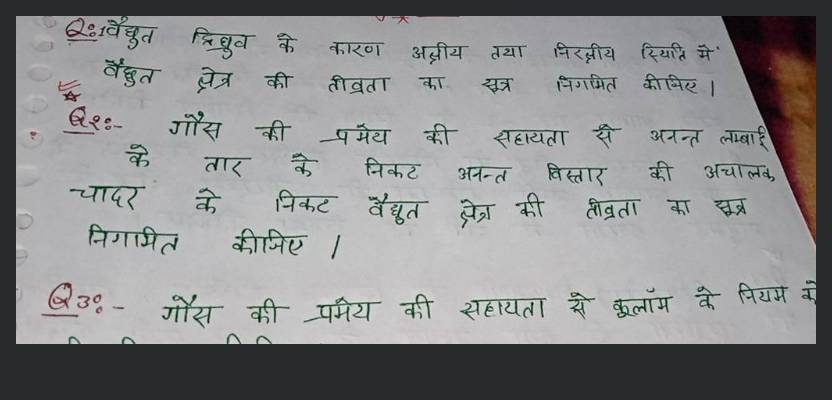 Q:1 वैद्युत द्विध्रुव के कारण अक्षीय तथा निरक्षीय स्थिति में
वैद्युत क्षेत्र की तीव्रता का सूत्र निगमित कीजिए |
Q२:- गौस की प्रमेय की सहायता से अनन्त लम्बाई
के तार के निकट अनन्त विस्तार की अचालक
चादर के निकट वैद्युत क्षेत्र की तीव्रता का सूत्र
निगमित कीजिए |
Q३:- गौस की प्रमेय की सहायता से कूलॉम के नियम को